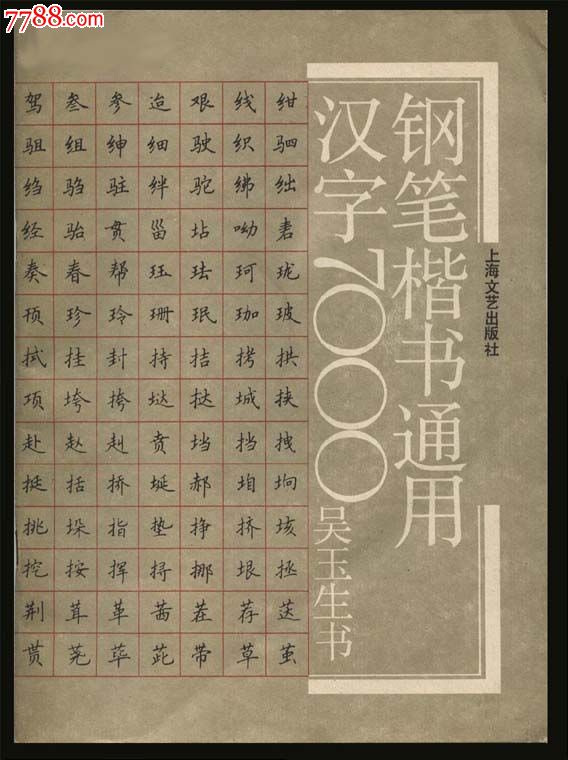 7788.com
中国收藏热线
钢笔楷书通用
汉字7000
吴玉生书
上海文艺出版社
驾叁参迨艰线绀
驵组绅细驶织驷
绉驺驻绊驼绋绌
经骀贯甾
奏春帮珏珐珂珑
顸珍玲珊珉珈玻
拭挂封持拮拷拱
项垮挎垯挞城挟
赴赵赳贲垱挡拽
挺括挢埏郝垍垧
挑垛指垫挣挤垓
挖按挥挦挪垠拯
荆茸革茜茬荐荙
贳荛荜茈带草茧